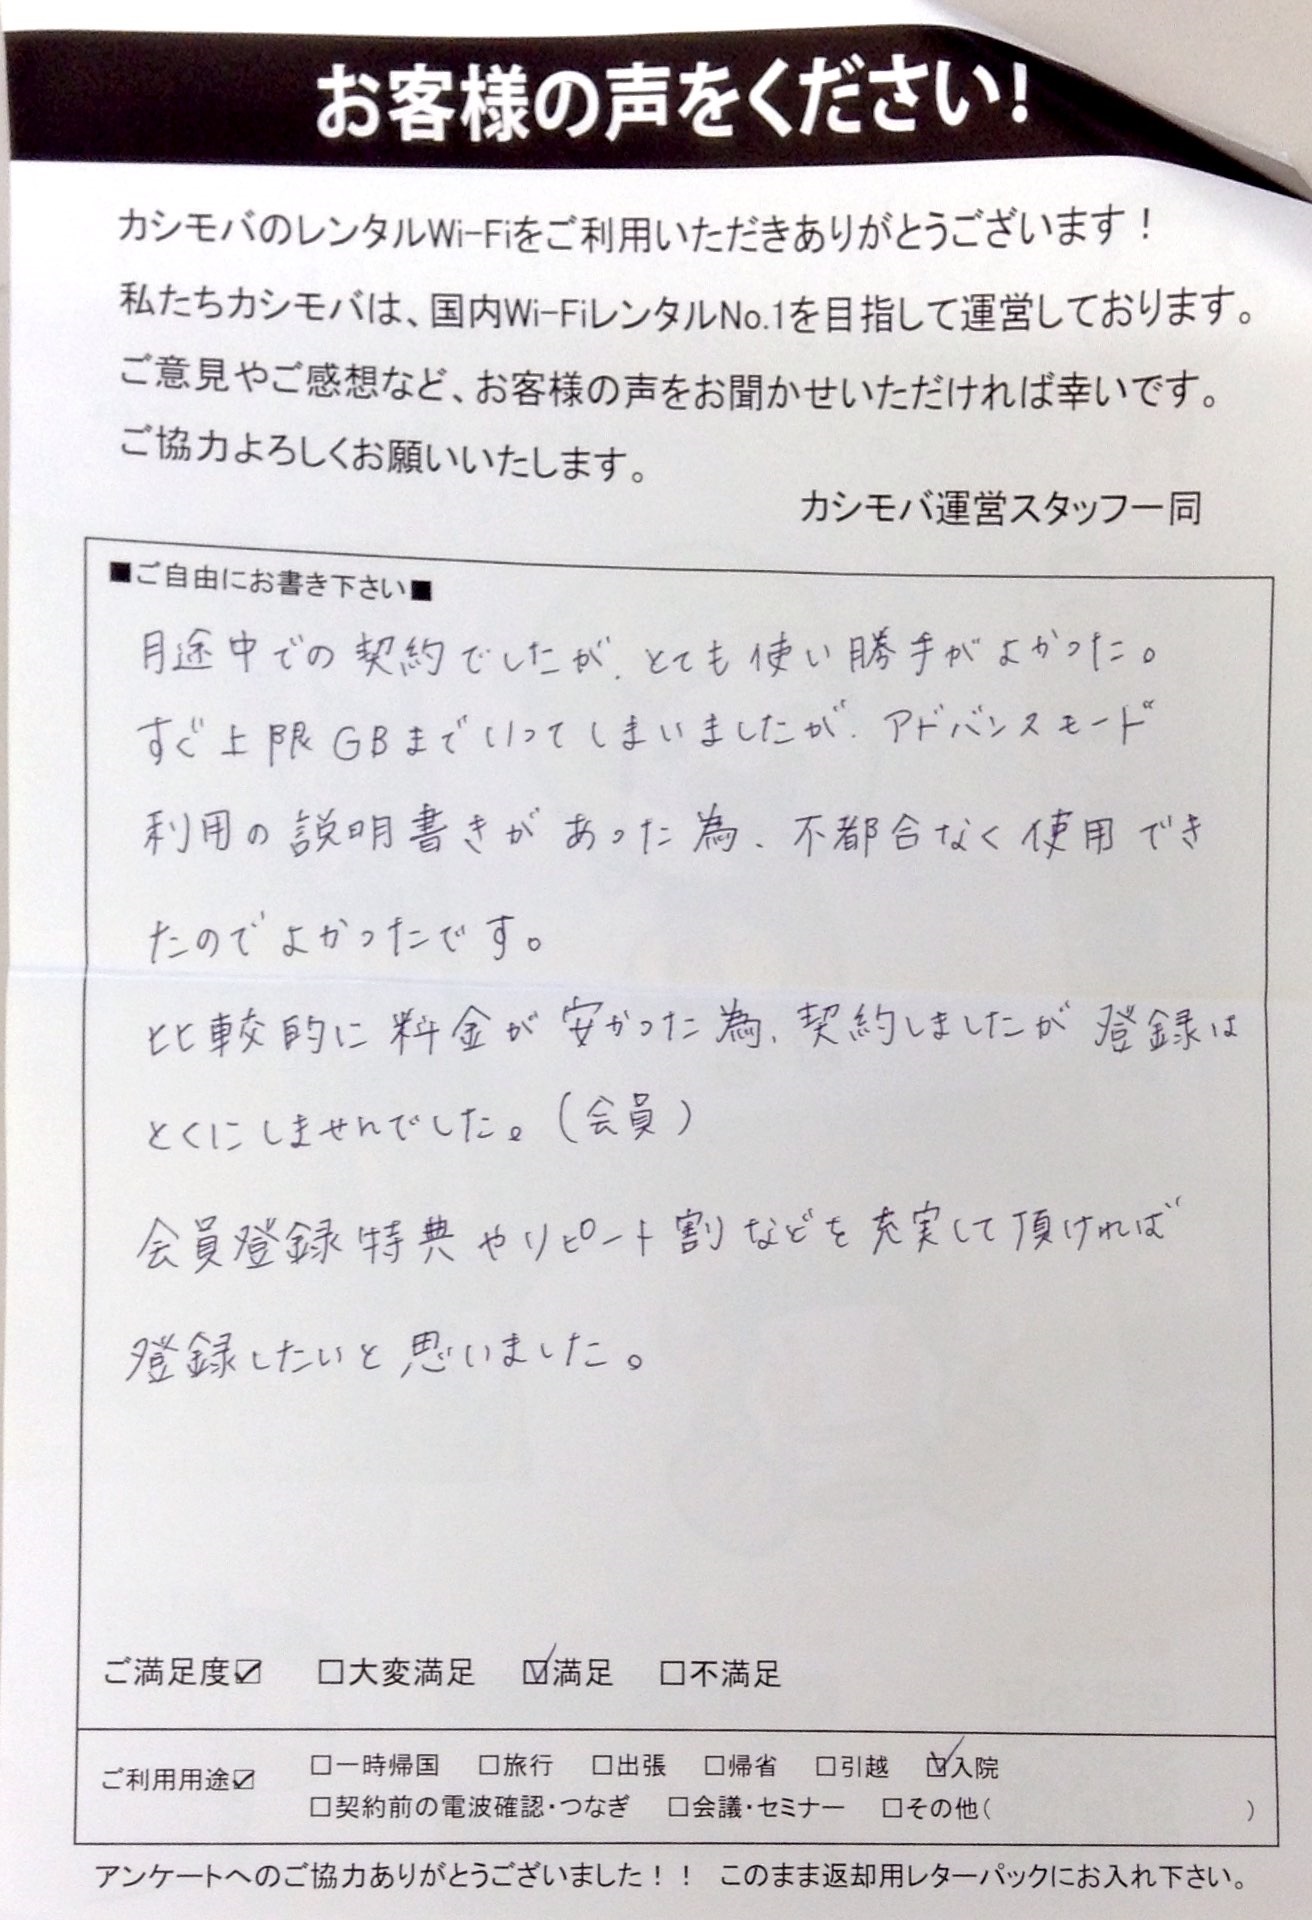 お客様の声をください!
カシモバのレンタルWi-Fiをご利用いただきありがとうございます！
私たちカシモバは、国内Wi-FiレンタルNo.1を目指して運営しております。
ご意見やご感想など、お客様の声をお聞かせいただければ幸いです。
ご協力よろしくお願いいたします。
カシモバ運営スタッフ一同
■ご自由にお書き下さい■
月途中での契約でしたが、とても使い勝手がよかった。
すぐ上限GBまでいってしまいましたが、アドバンスモード
利用の説明書きがあった為、不都合なく使用でき
たのでよかったです。
比較的に料金が安かった為、契約しましたが登録は
とくにしませんでした。(会員)
会員登録特典やリピート割などを充実して頂ければ
登録したいと思いました。
ご満足度☑ □大変満足 ☑満足 □不満足
ご利用用途☑ □一時帰国 □旅行 □出張 □帰省 □引越 ☑入院
□契約前の電波確認・つなぎ □会議・セミナー □その他( )
アンケートへのご協力ありがとうございました！！ このまま返却用レターパックにお入れ下さい。